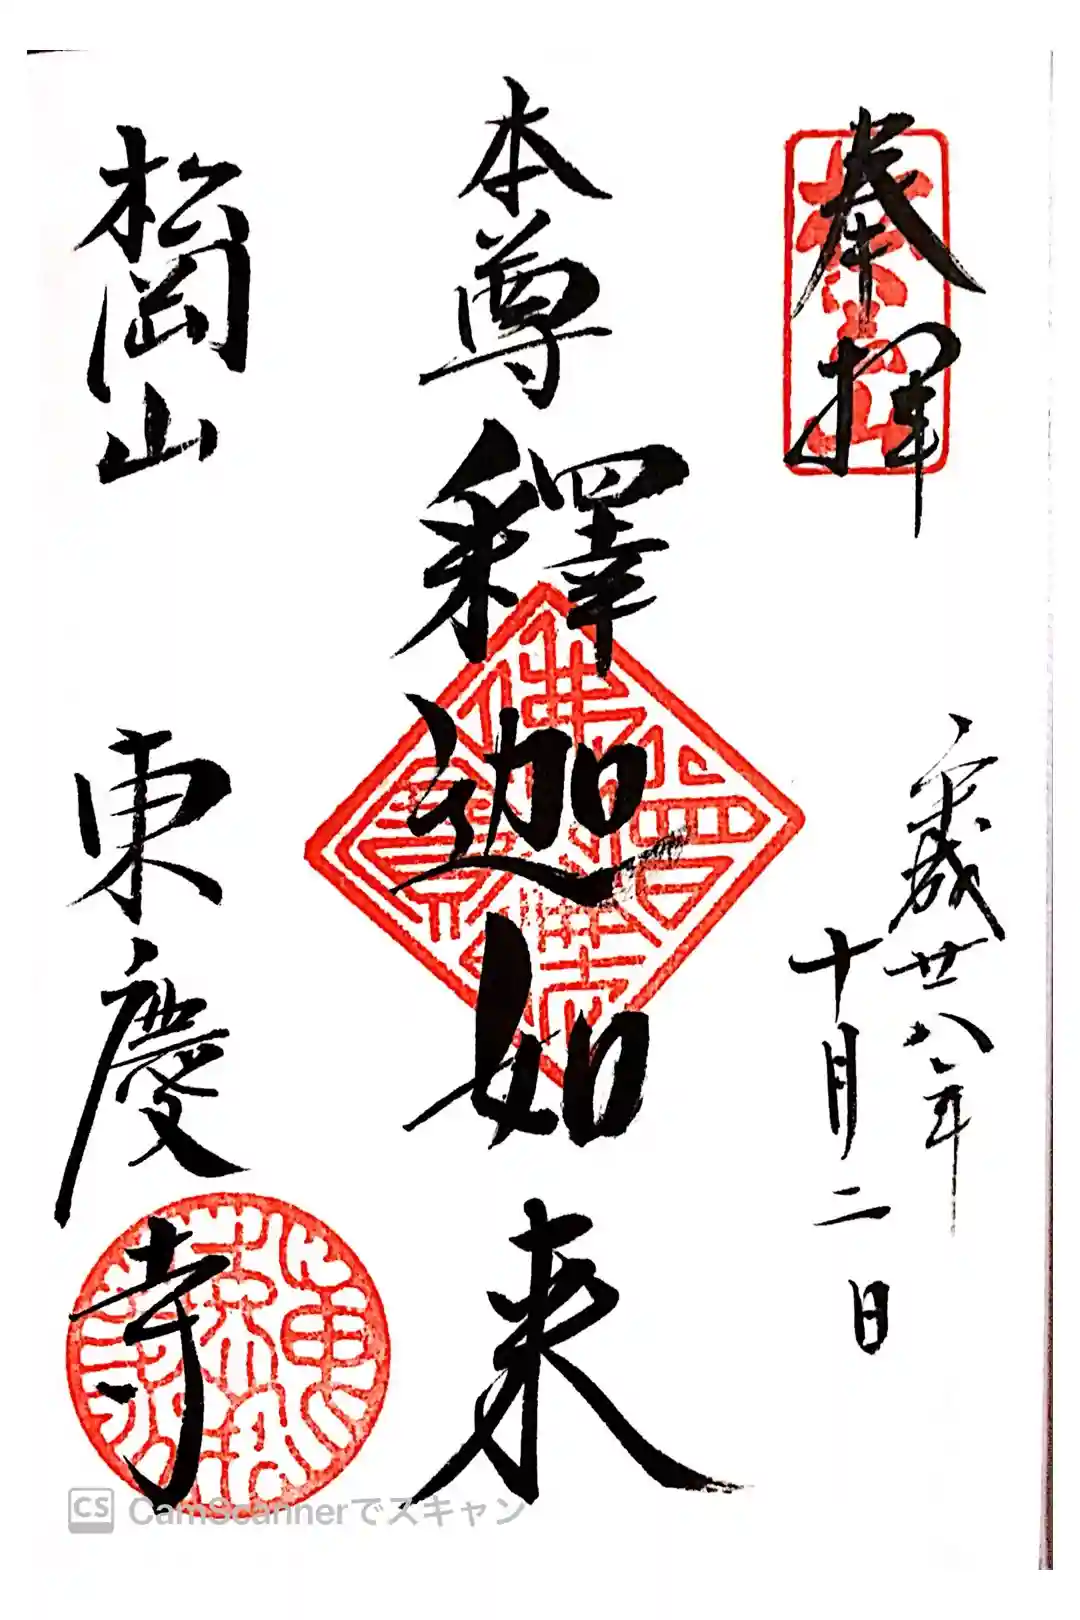 奉拝
平成廿八年
十月二日
本尊釋迦如来
松岡山
東慶寺
CS CamScannerでスキャン